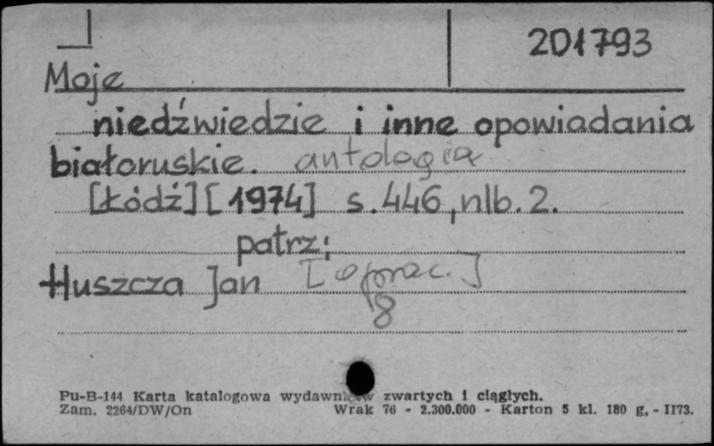 201793
Moje
niedźwiedzie i inne opowiadania
białoruskie. antologia
[Łódź] [1974] s. 446, nlb. 2.
patrz:
Huszcza Jan [oprac.]
8
Pu-B-144 Karta katalogowa wydawnictw zwartych i ciągłych.
Zam. 2264/DW/On Wrak 76 - 2.300.000 - Karton 5 kl. 180 g. - II73.